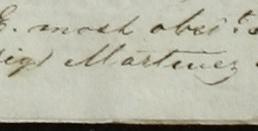 E. most obet. s
sig) Martinez